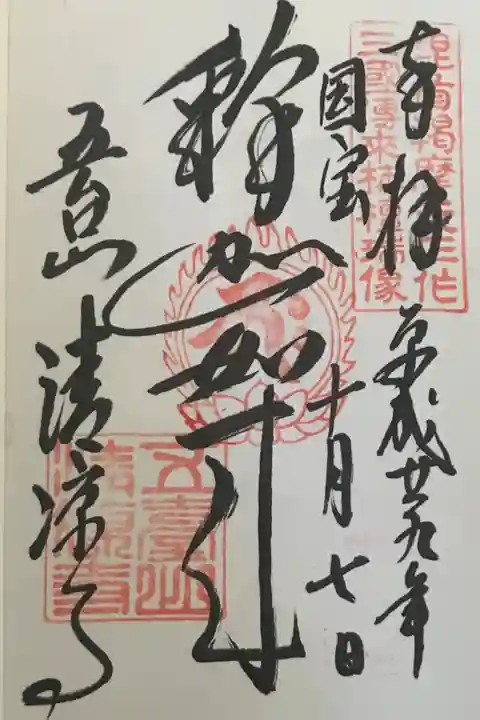 奉拝
平成廿九年
国宝
十月七日
釋迦如来
五台山
清凉寺
毘首羯磨
三國傳来栴檀瑞像
五臺山
清凉寺